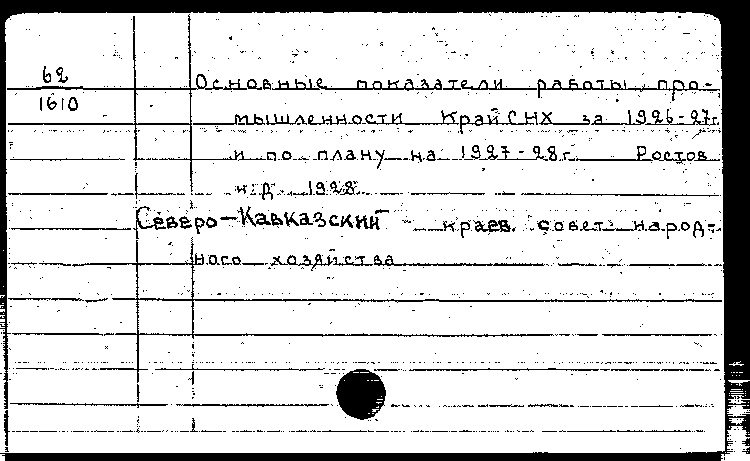 62
1610
Основные показатели работы про-
мышленности КрайСНХ за 1926-27г.
и по плану на 1927-28г. Ростов
н.Д. 1928.
Северо-Кавказский краев. совет народ-
ного хозяйства